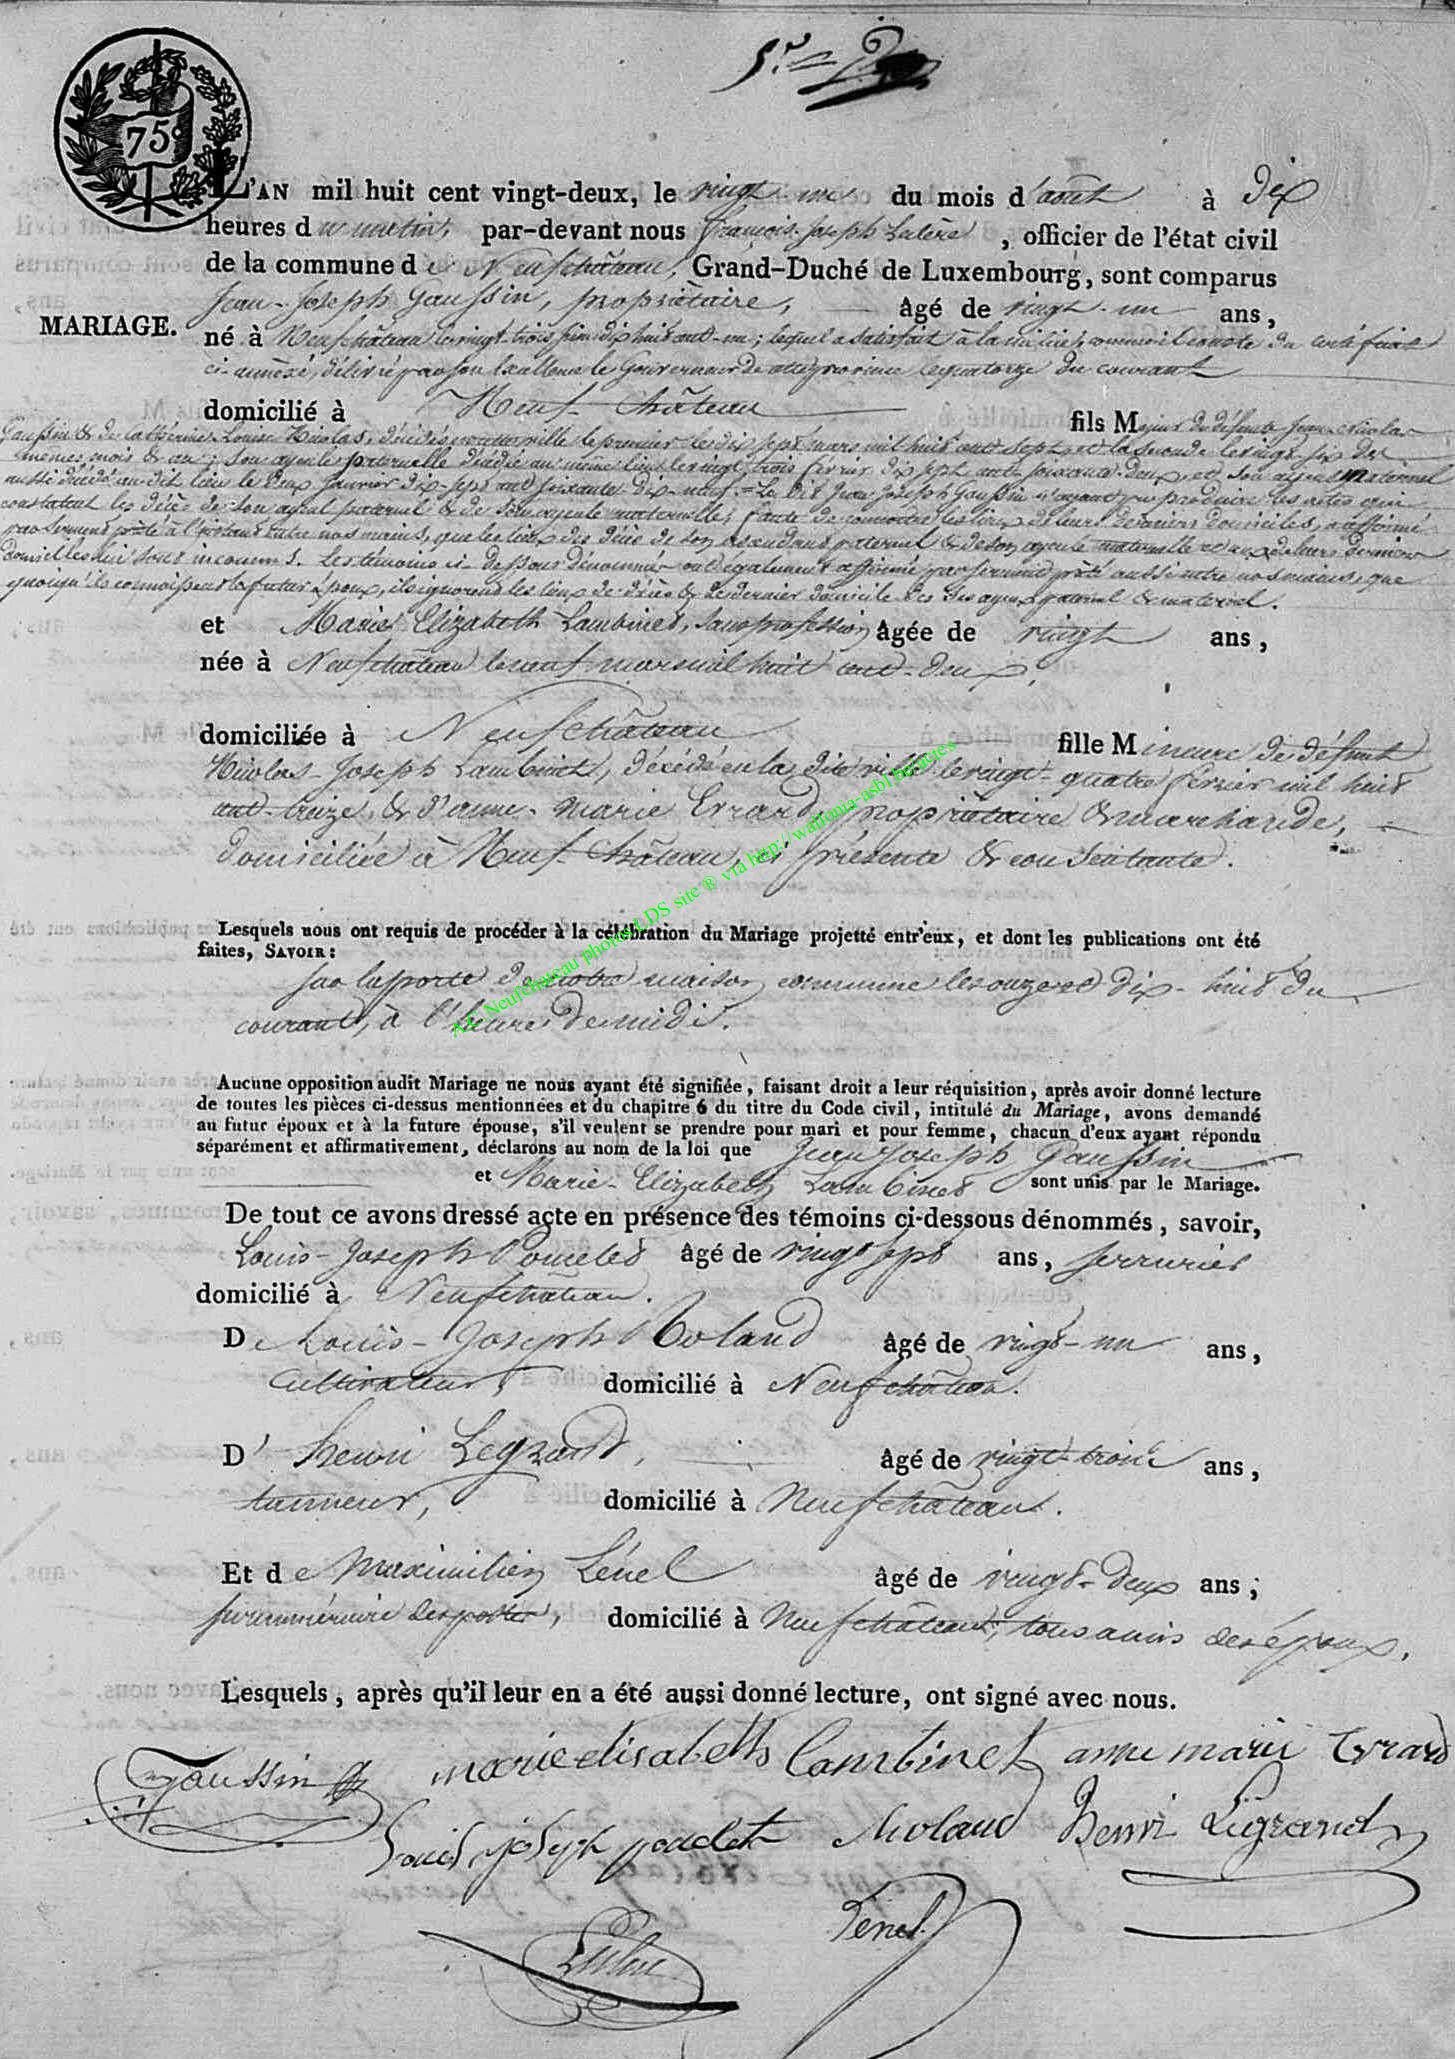 75
L'AN mil huit cent vingt-deux, le vingt un du mois d'août à dix
heures du matin, par-devant nous françois-Joseph , officier de l'état civil
de la commune de Neufchâteau, Grand-Duché de Luxembourg, sont comparus
MARIAGE.
Jean-Joseph Gaussin, propriétaire, âgé de vingt-un ans,
né à Neufchâteau le vingt-trois juin dix huit cent-un ; lequel a satisfait à la milice, comme il conste du certificat
ci-annexé, délivré par son Excellence le Gouverneur de cette province le quatorze du courant
domicilié à Neuf-Château fils Majeur de défunts Jean-Nicolas
Gaussin & de Cathérine-Louise Nicolas, décédés en cette ville le premier le dix sept mars mil huit cent sept et la seconde le vingt-six du
même mois & an ; son ayeule paternelle décédée au même lieu le vingt trois février dix sept cent soixante-deux, et son ayeul maternel
aussi décédé au dit lieu le deux janvier dix-sept cent soixante-dix-neuf. = Le dit Jean-Joseph Gaussin n'ayant pu produire les actes qui
constatent les décès de son ayeul paternel & de son ayeule maternelle, faute de connoitre les lieux de leurs derniers domiciles, a affirmé
par serment prêté à l'instant entre nos mains, que les lieux des décès de son ascendant paternel & de son ayeule maternelle et ceux de leurs derniers
domiciles lui sont inconnus. Les témoins ci-dessous dénommés ont également affirmé par serment prêté aussi entre nos mains, que
quoiqu'ils connoissent le futur époux, ils ignorent les lieux de décès & de dernier domicile des ses ayeux paternel & maternel.
et Marie Elizabeth Lambinet, sans profession âgée de vingt ans,
née à Neufchâteau le neuf mars mil huit cent-deux,
domiciliée à Neufchâteau fille Mineure de défunt
Nicolas-Joseph Lambinet, décédé en la dite ville le vingt-quatre février mil huit
cent-treize, & d'anne-Marie Errard, propriétaire & marchande,
domiciliée à Neuf-Château, ci présente & consentante.
Lesquels nous ont requis de procéder à la célébration du Mariage projetté entr'eux, et dont les publications ont été
faites, SAVOIR :
sur la porte de notre maison commune les onze et dix-huit du
courant, à l'heure de midi.
Aucune opposition audit Mariage ne nous ayant été signifiée, faisant droit a leur réquisition, après avoir donné lecture
de toutes les pièces ci-dessus mentionnées et du chapitre 6 du titre du Code civil, intitulé du Mariage, avons demandé
au futur époux et à la future épouse, s'il veulent se prendre pour mari et pour femme, chacun d'eux ayant répondu
séparément et affirmativement, déclarons au nom de la loi que Jean Joseph Gaussin
et Marie-Elizabeth Lambinet sont unis par le Mariage.
De tout ce avons dressé acte en présence des témoins ci-dessous dénommés, savoir,
Louis-Joseph Poncelet âgé de vingt sept ans, serrurier
domicilié à Neufchâteau.
De Louis-Joseph Roland âgé de vingt-un ans,
Cultivateur, domicilié à Neufchâteau.
D'henri Legrand, âgé de vingt trois ans,
tanneur, domicilié à Neufchâteau.
Et de Maximilien Lénel âgé de vingt-deux ans ;
surnuméraire des postes, domicilié à Neufchâteau, tous amis des époux.
Lesquels, après qu'il leur en a été aussi donné lecture, ont signé avec nous.
Gaussin marie elisabeth lambinet anne marie Errard
Louis joseph poncelet Roland henri Legrand
Lénel
A.E. Neufchateau photos LDS site ® via http://wallonia-asbl.be/actes